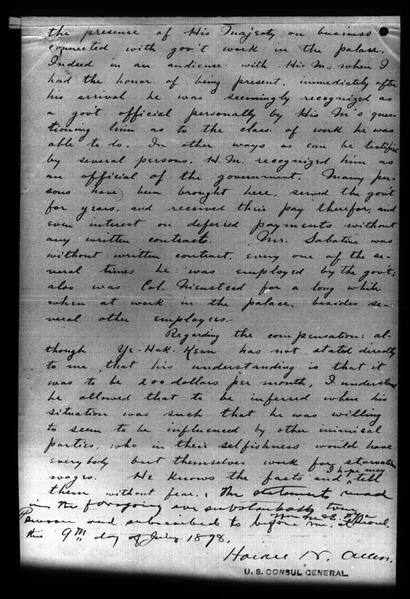 the presence of His Majesty on business
connected with gov't work in the palace.
Indeed in an audience with His M. when I
had the honor of being present, immediately after
his arrival he was seemingly recognized as
a gov't official personally by His M's ques-
tioning him as to the class of work he was
able to do. In other ways as can be testified
by several persons, H.M. recognized him as
an official of the government. Many per-
sons have been brought here, served the gov't
for years, and received their pay therefor, and
even interest on deferred payments without
any written contracts. Mr. Sabatine was
without written contract, every one of the se-
veral times he was employed by the gov't;
also was Col. Nienstead for a long while
when at work in the palace, besides se-
veral other employees.
Regarding the compensation: al-
though Ye-Hak-Keun has not stated directly
to me, that his understanding is that it
was to be 200 dollars per month, I understand
he allowed that to be inferred when his
situation was such that he was willing
to seem to be influenced by other inimical
parties, who in their selfishness would have
everybody but themselves work for starvation
wages. He knows the facts and I hope may tell
them without fear. The statements made
in the foregoing are substantially true
and subscribed to before me, at Seoul,
this 9th day of July 1898.
Horace N. Allen.
U. S. CONSUL GENERAL.